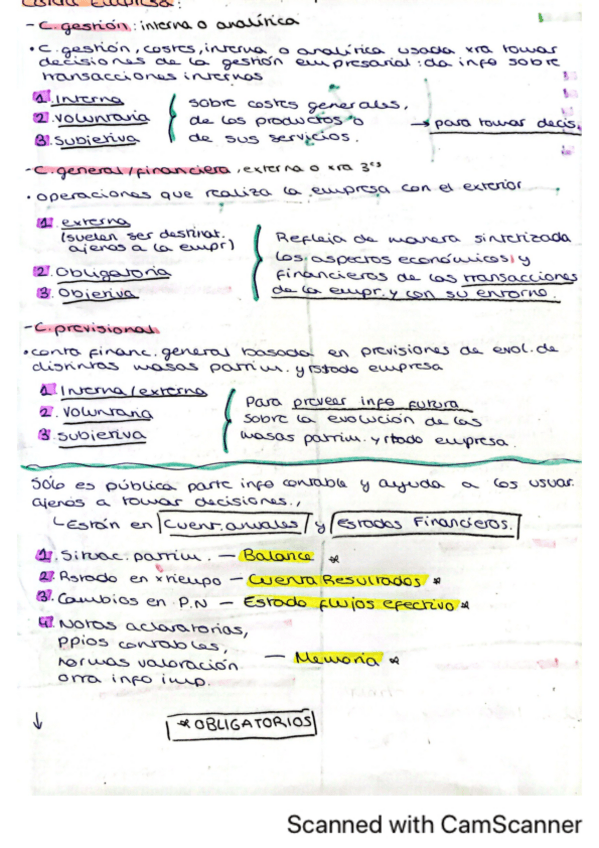 Conta Empresa:
- C. gestión: interna o analítica
• C. gestión, costes, interna o analítica usada xra tomar
decisiones de la gestión empresarial: da info sobre
transacciones internas
1. Interna
2. Voluntaria
3. Subjetiva
sobre costes generales,
de los productos o
de sus servicios.
→ para tomar decis.
- C. general/financiera, externa o xra 3ºs
• operaciones que realiza la empresa con el exterior
1. externa
(suelen ser destinat.
ajenos a la empr)
2. Obligatoria
3. Objetiva
Refleja de manera sintetizada
los aspectos económicos y
financieros de las transacciones
de la empr. y con su entorno.
- C. previsional
• conta financ. general basada en previsiones de evol. de
distintas masas patrim. y rstado empresa
1. Interna/externa
2. Voluntaria
3. Subjetiva
Para preveer info futura
sobre la evolución de las
masas patrim. y rtado empresa.
Sólo es pública parte info contable y ayuda a los usuar.
ajenos a tomar decisiones.,
↳ Están en Cuent. anuales y Estados Financieros.
1. Situac. patrim. — Balance *
2. Rstado en xtiempo — Cuenta Resultados *
3. Cambios en P.N — Estado flujos efectivo *
4. Notas aclaratorias,
ppios contables,
normas valoración
otra info imp.
— Memoria *
↓
* OBLIGATORIOS
Scanned with CamScanner